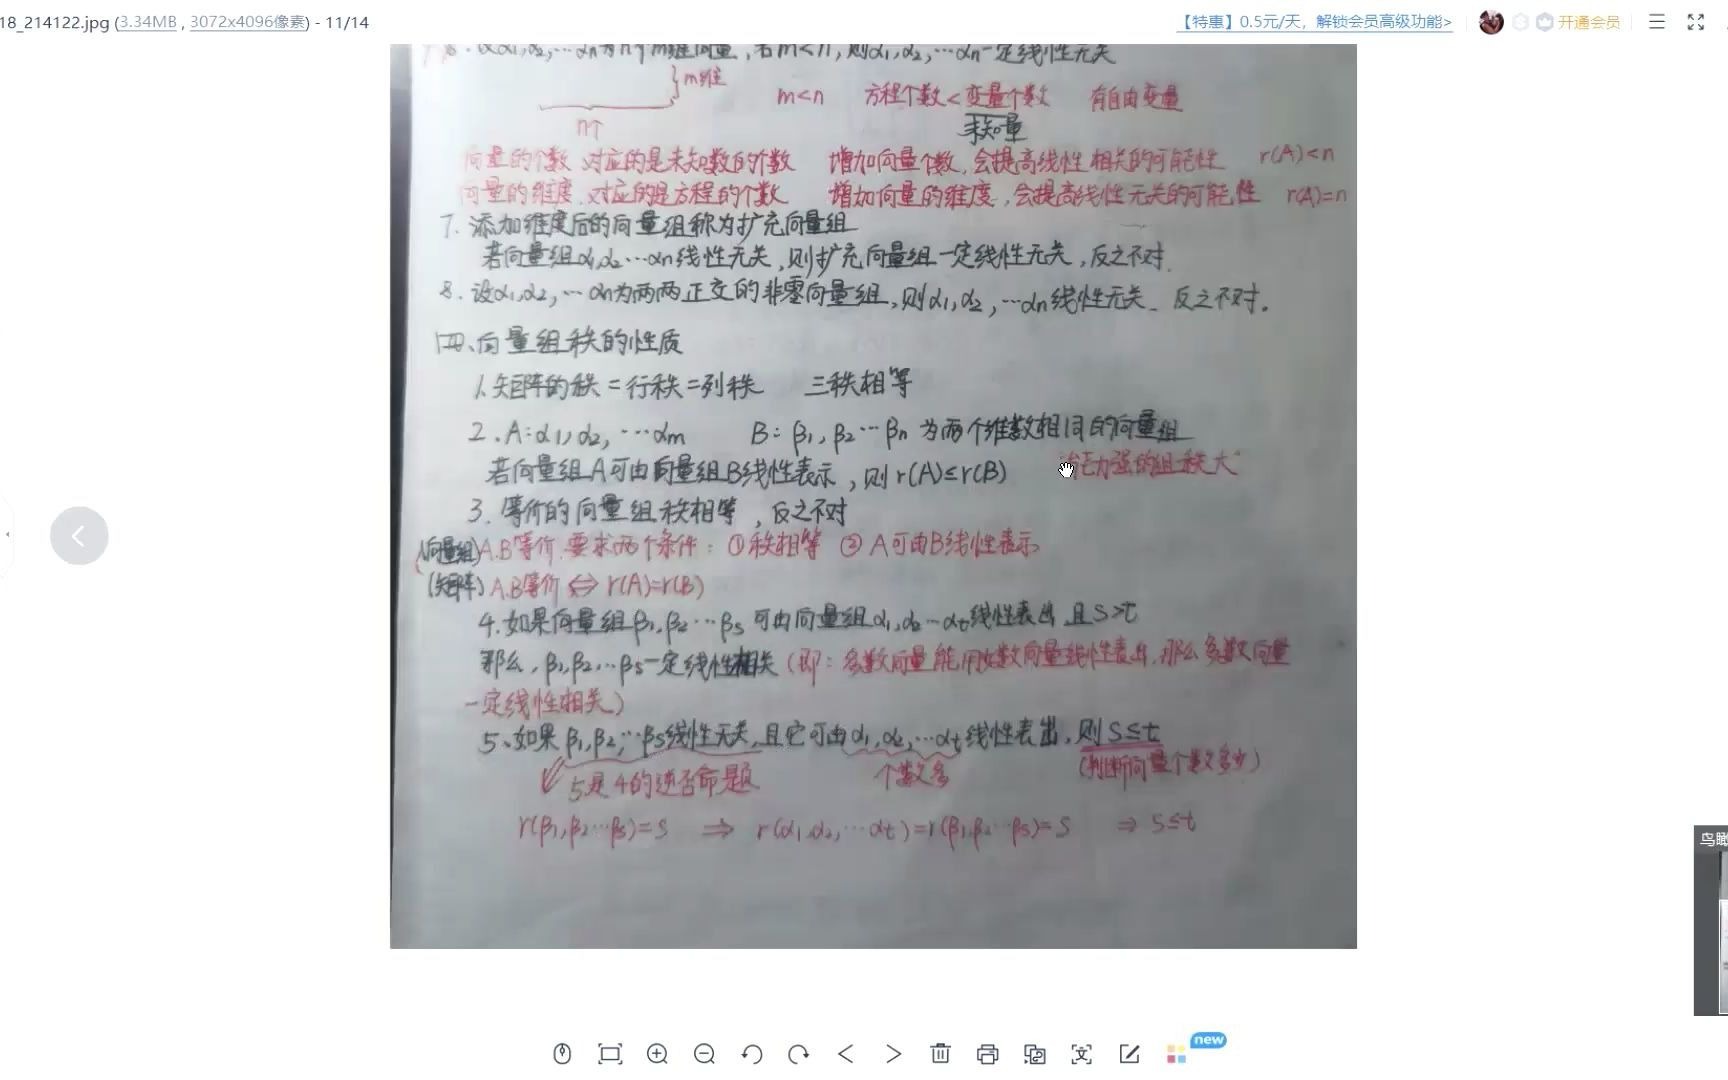 18_214122.jpg (3.34MB , 3072x4096像素) - 11/14
【特惠】0.5元/天，解锁会员高级功能>
开通会员
6. 设α1,α2,…αn为n个m维向量,若m<n,则α1,α2,…αn一定线性无关
}m维
m<n 方程个数<变量个数 有自由变量
n个
未知量
向量的个数 对应的是未知数的个数 增加向量个数,会提高线性相关的可能性 r(A)<n
向量的维度,对应的是方程的个数 增加向量的维度,会提高线性无关的可能性 r(A)=n
7. 添加维度后的向量组称为扩充向量组
若向量组α1,α2…αn线性无关,则扩充向量组一定线性无关,反之不对.
8. 设α1,α2,…αn为两两正交的非零向量组,则α1,α2,…αn线性无关. 反之不对.
四、向量组秩的性质
1.矩阵的秩=行秩=列秩 三秩相等
2. A:α1,α2,…αm B:β1,β2…βn 为两个维数相同的向量组
若向量组A可由向量组B线性表示,则r(A)≤r(B)
能力强的组秩大
3. 等价的向量组秩相等,反之不对
(向量组)A.B等价,要求两个条件: ①秩相等 ②A可由B线性表示
(矩阵)A.B等价⇔r(A)=r(B)
4.如果向量组β1,β2…βs可由向量组α1,α2…αt线性表出,且s>t
那么,β1,β2,…βs一定线性相关(即:多数向量能用少数向量线性表出,那么多数向量
一定线性相关)
5.如果β1,β2,…βs线性无关,且它可由α1,α2,…αt线性表出,则s≤t
5是4的逆否命题 个数多 (判断向量个数多少)
r(β1,β2…βs)=s ⇒ r(α1,α2,…αt)=r(β1,β2…βs)=s ⇒ s≤t
鸟瞰
new